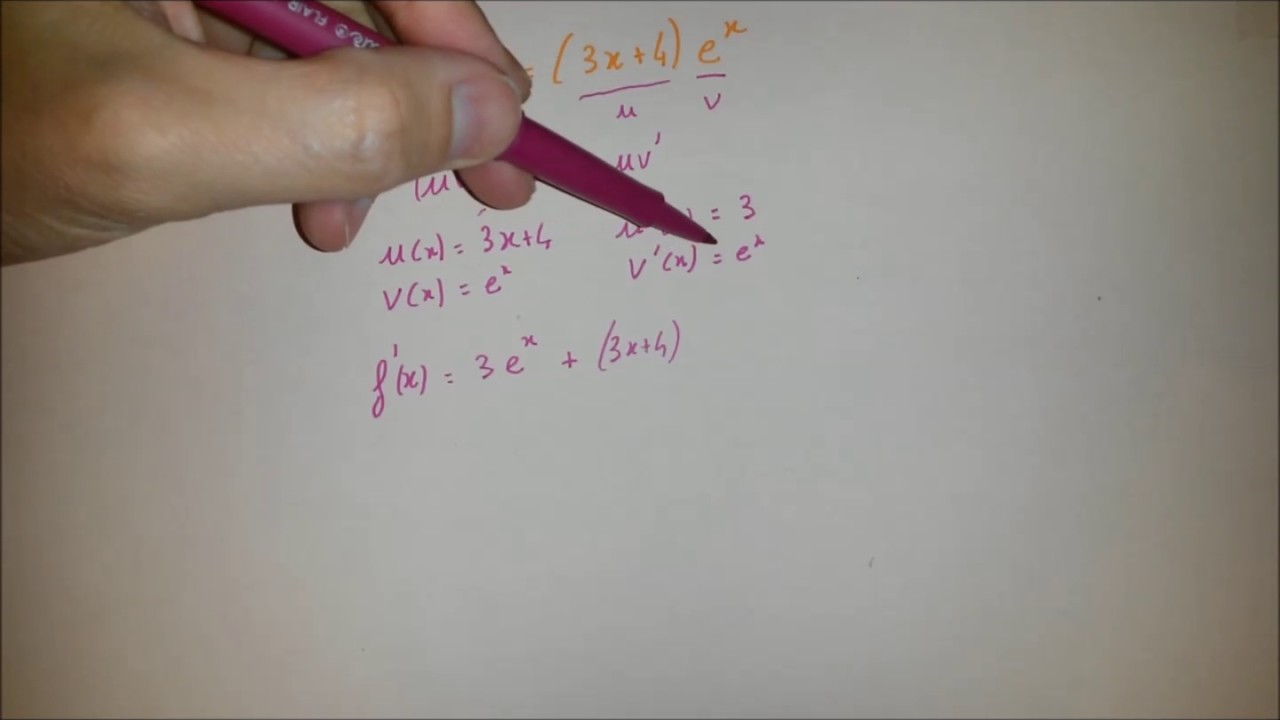 FLAIR
= (3x+4) e^x
u v
(u uv'
u(x) = 3x+4 u = 3
v(x) = e^x v'(x) = e^x
f'(x) = 3e^x + (3x+4)